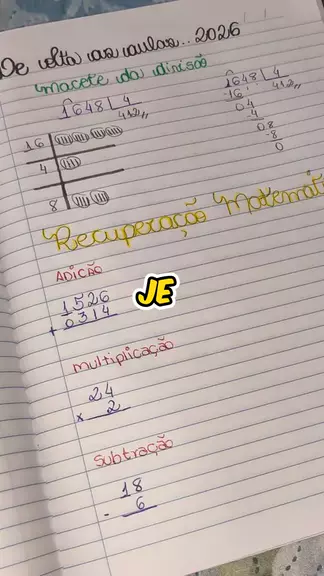 De volta as aulas... 2026
macete da divisão
1648 | 4
412,,
16
4
8
1648 | 4
-16 412,,
04
-4
08
-8
0
Recuperação Matemáti
ADIÇÃO
1526
+ 0314
JE
multiplicação
24
x 2
Subtração
18
- 6